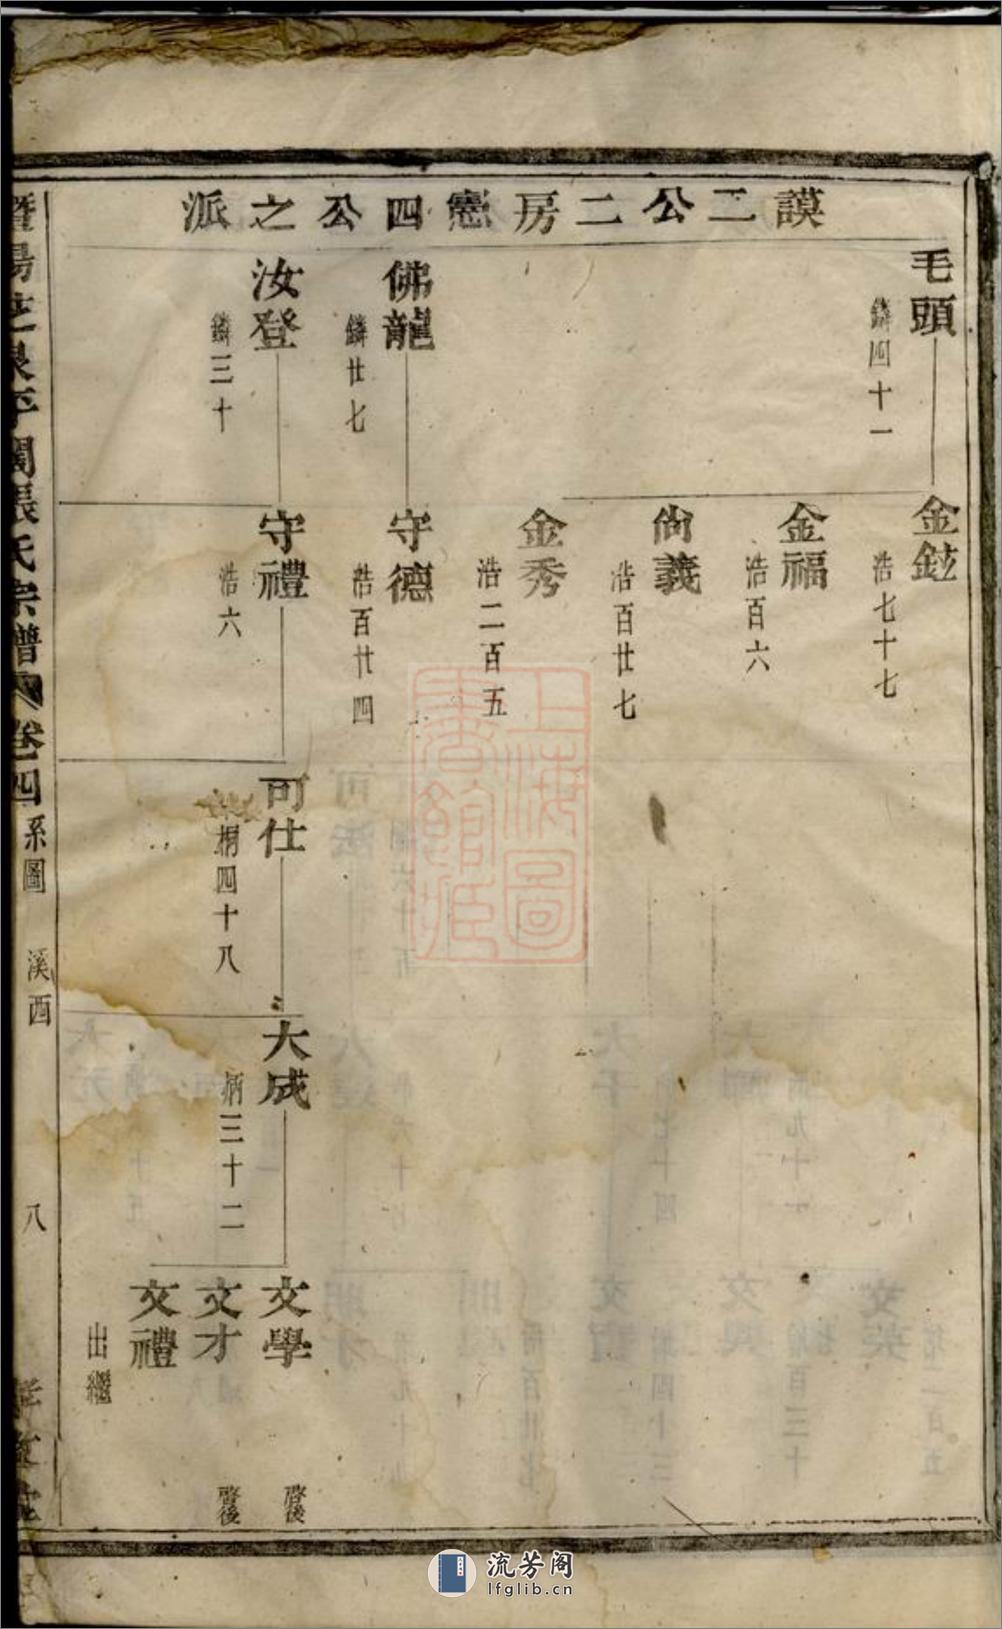 謨二公二房憲四公之派
毛頭
鏻四十一
佛龍
鏻廿七
汝登
鏻三十
金鉉
浩七十七
金福
浩百六
尚義
浩百廿七
金秀
浩二百五
守德
浩百廿四
守禮
浩六
可仕
桐四十八
大成
炳三十二
文學
啓後
文才
啓後
文禮
出繼
暨陽
張氏宗譜
卷四
系圖
溪西
八
孝友堂
上海圖書館藏
流芳阁
lfglib.cn